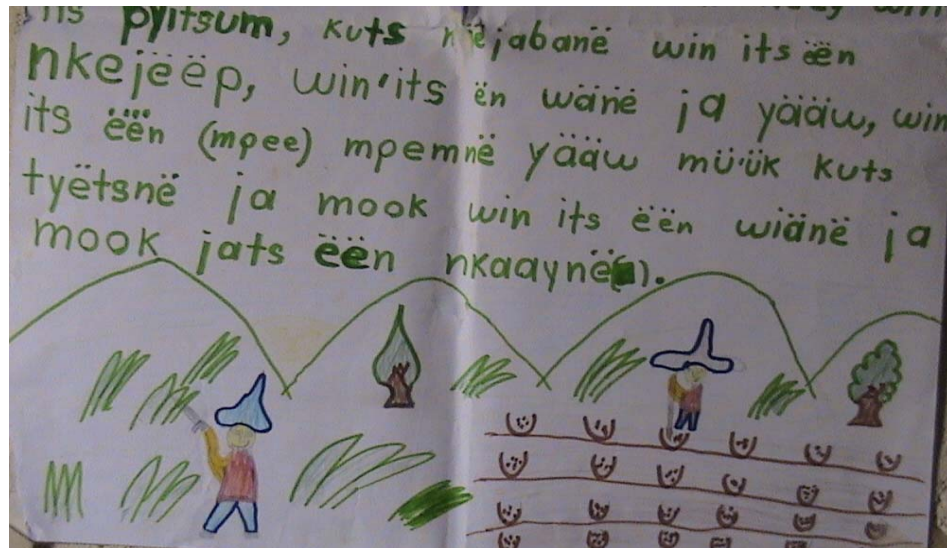 pyitsum, kuts nëjabanë win its ëën
nkejëëp, win'its ën wänë ja yääw, win
its ëën (mpee) mpemnë yääw mü'ük kuts
tyëtsnë ja mook win its ëën wiänë ja
mook jats ëën nkaaynë().